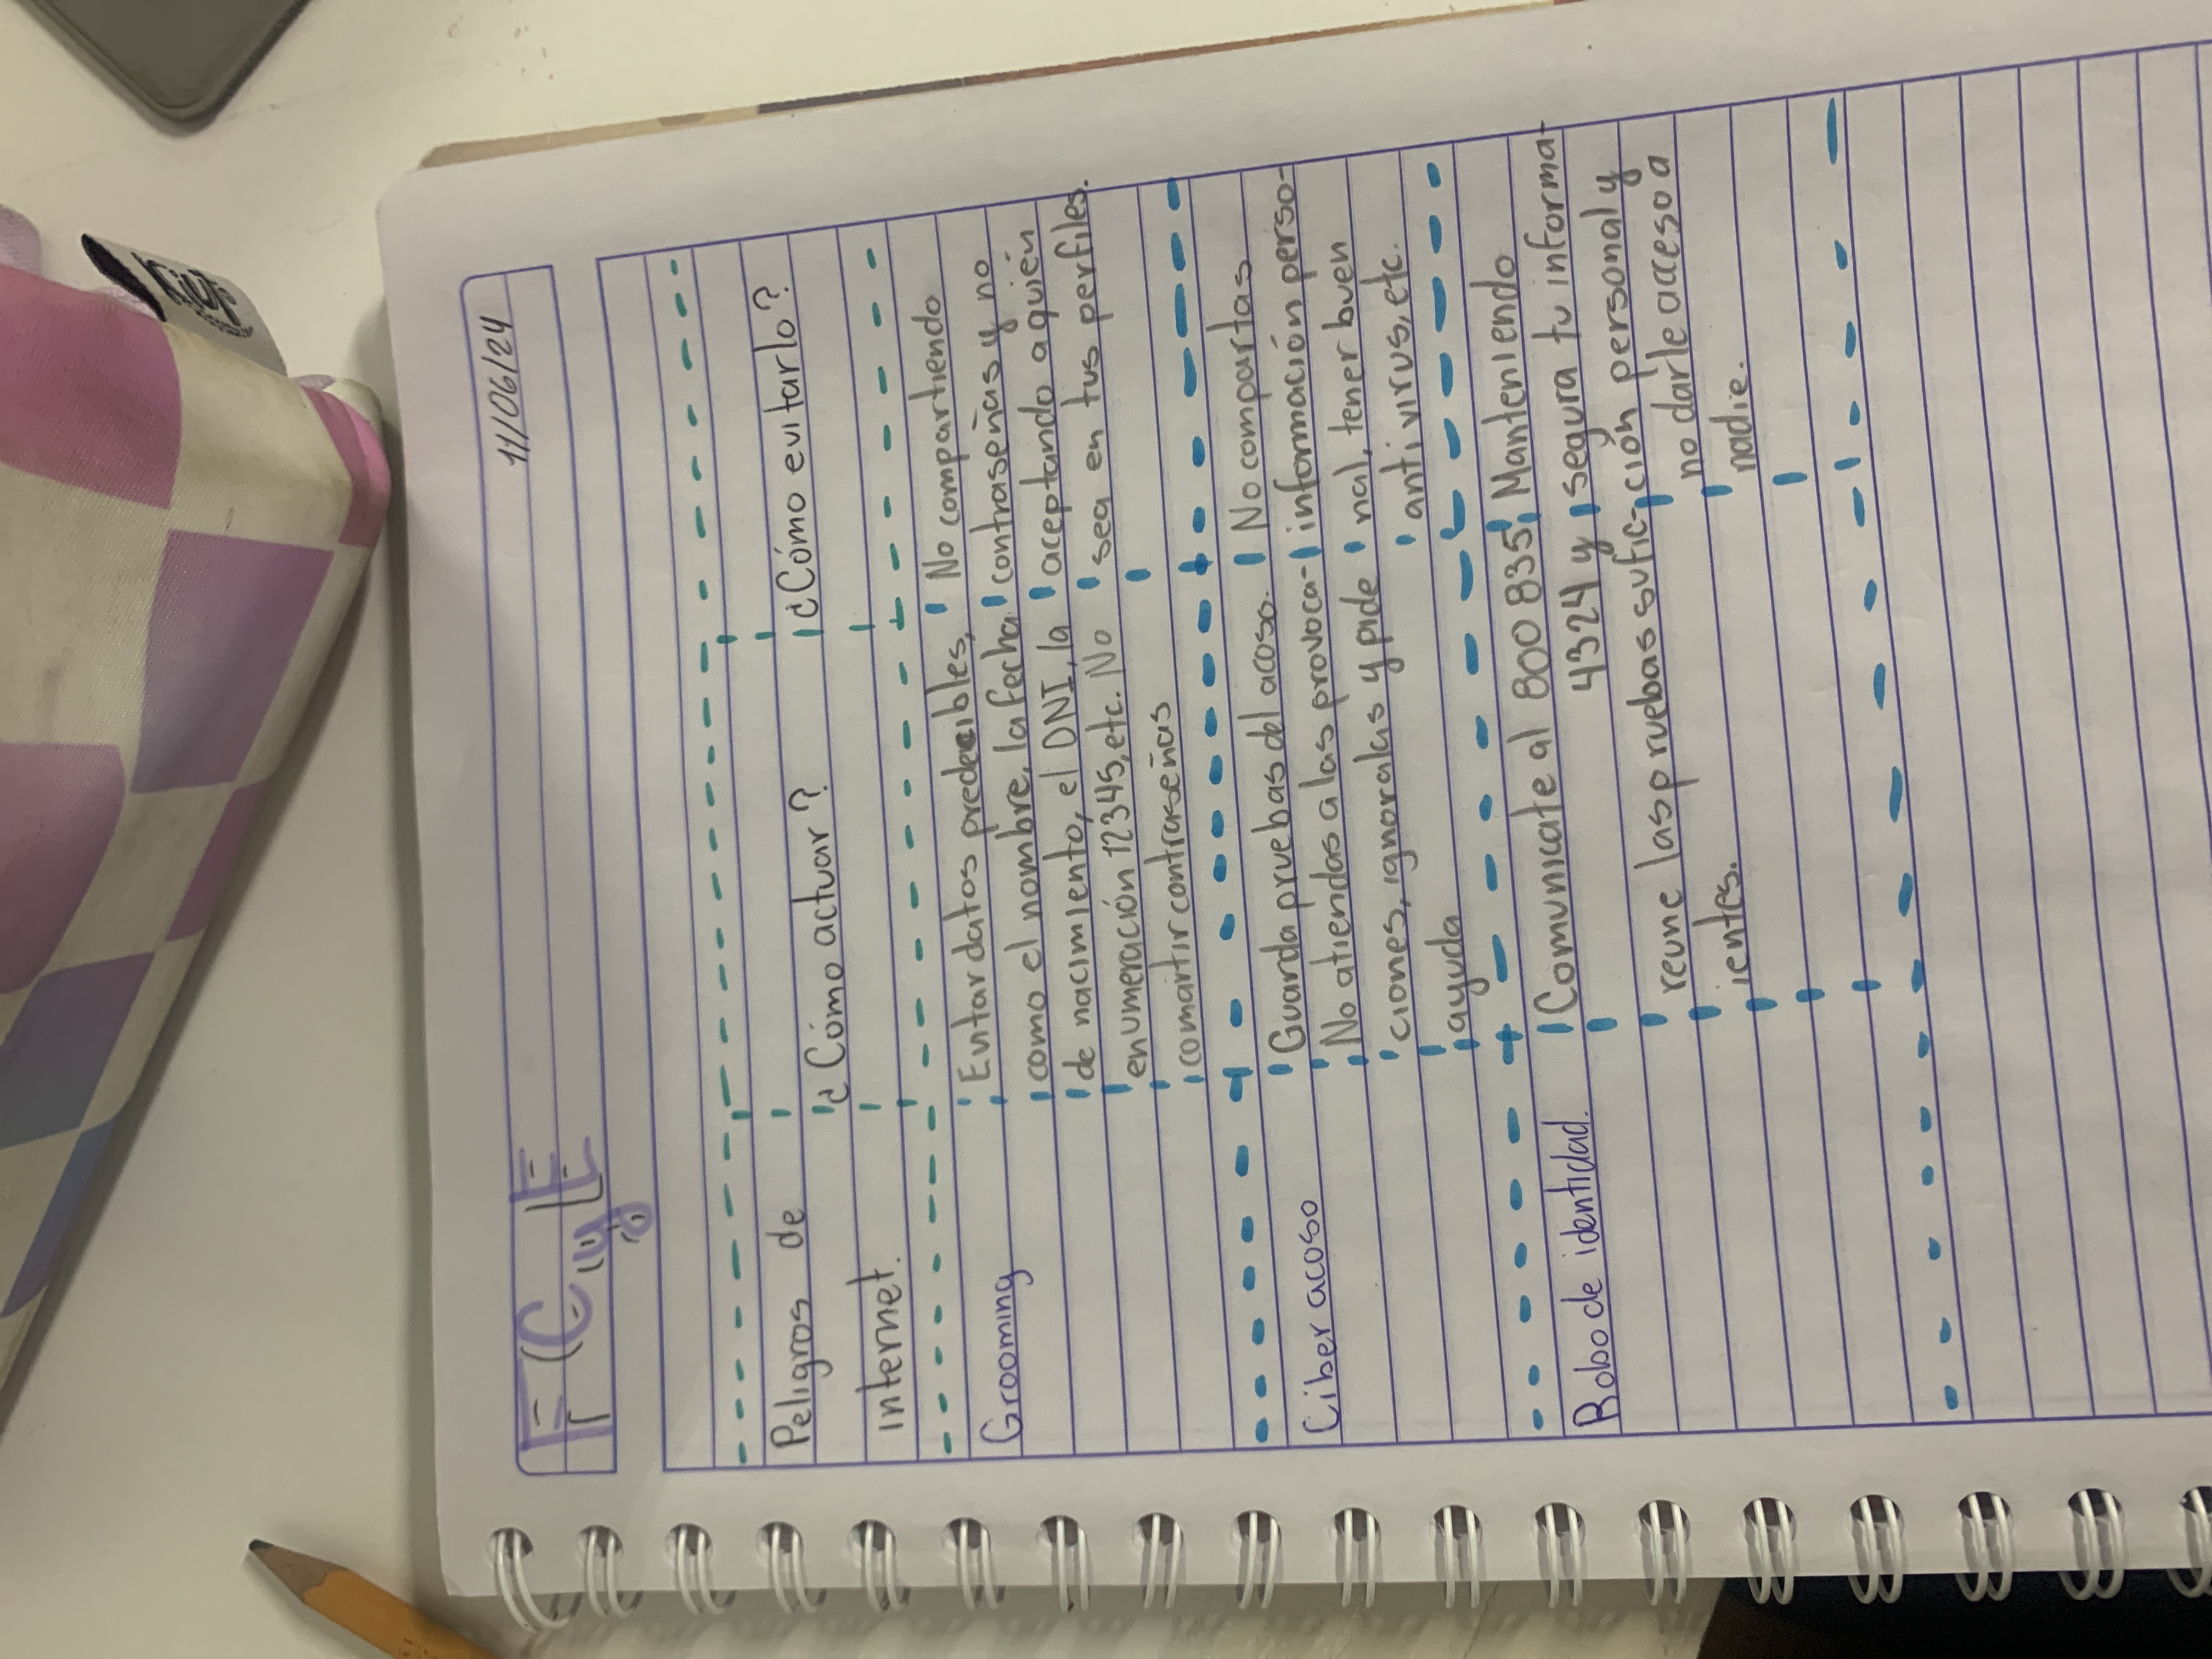 11/06/24
F C y E
Peligros de
internet.
¿Cómo actuar?
¿Cómo evitarlo?
Grooming
Evitar datos predecibles,
como el nombre, la fecha
de nacimiento, el DNI, la
enumeración 12345, etc. No
comártir contraseñas
No compartiendo
contraseñas y no
aceptando a quién
sea en tus perfiles.
Ciber acoso
Guarda pruebas del acoso.
No atiendas a las provoca-
ciones, ignoralas y pide
ayuda
No compartas
información perso-
nal, tener buen
antivirus, etc.
Robo de identidad.
Comunicate al 800 835
4324 y
reune las pruebas sufic-
ientes.
Manteniendo
segura tu informa-
ción personal y
no darle acceso a
nadie.